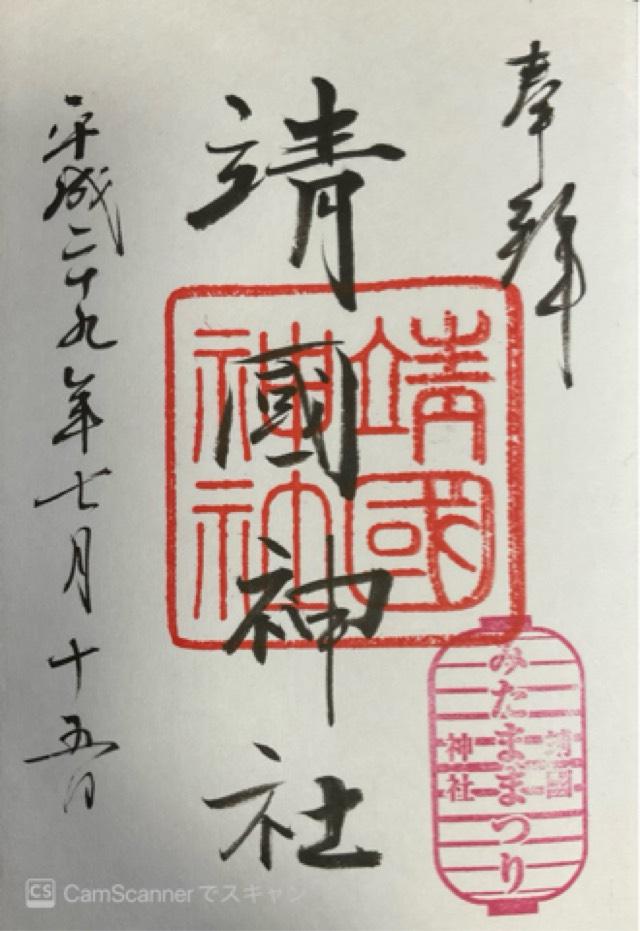 奉拝
靖國神社
平成二十九年七月十五日
靖國
神社
靖國
みたままつり
神社
CS CamScannerでスキャン